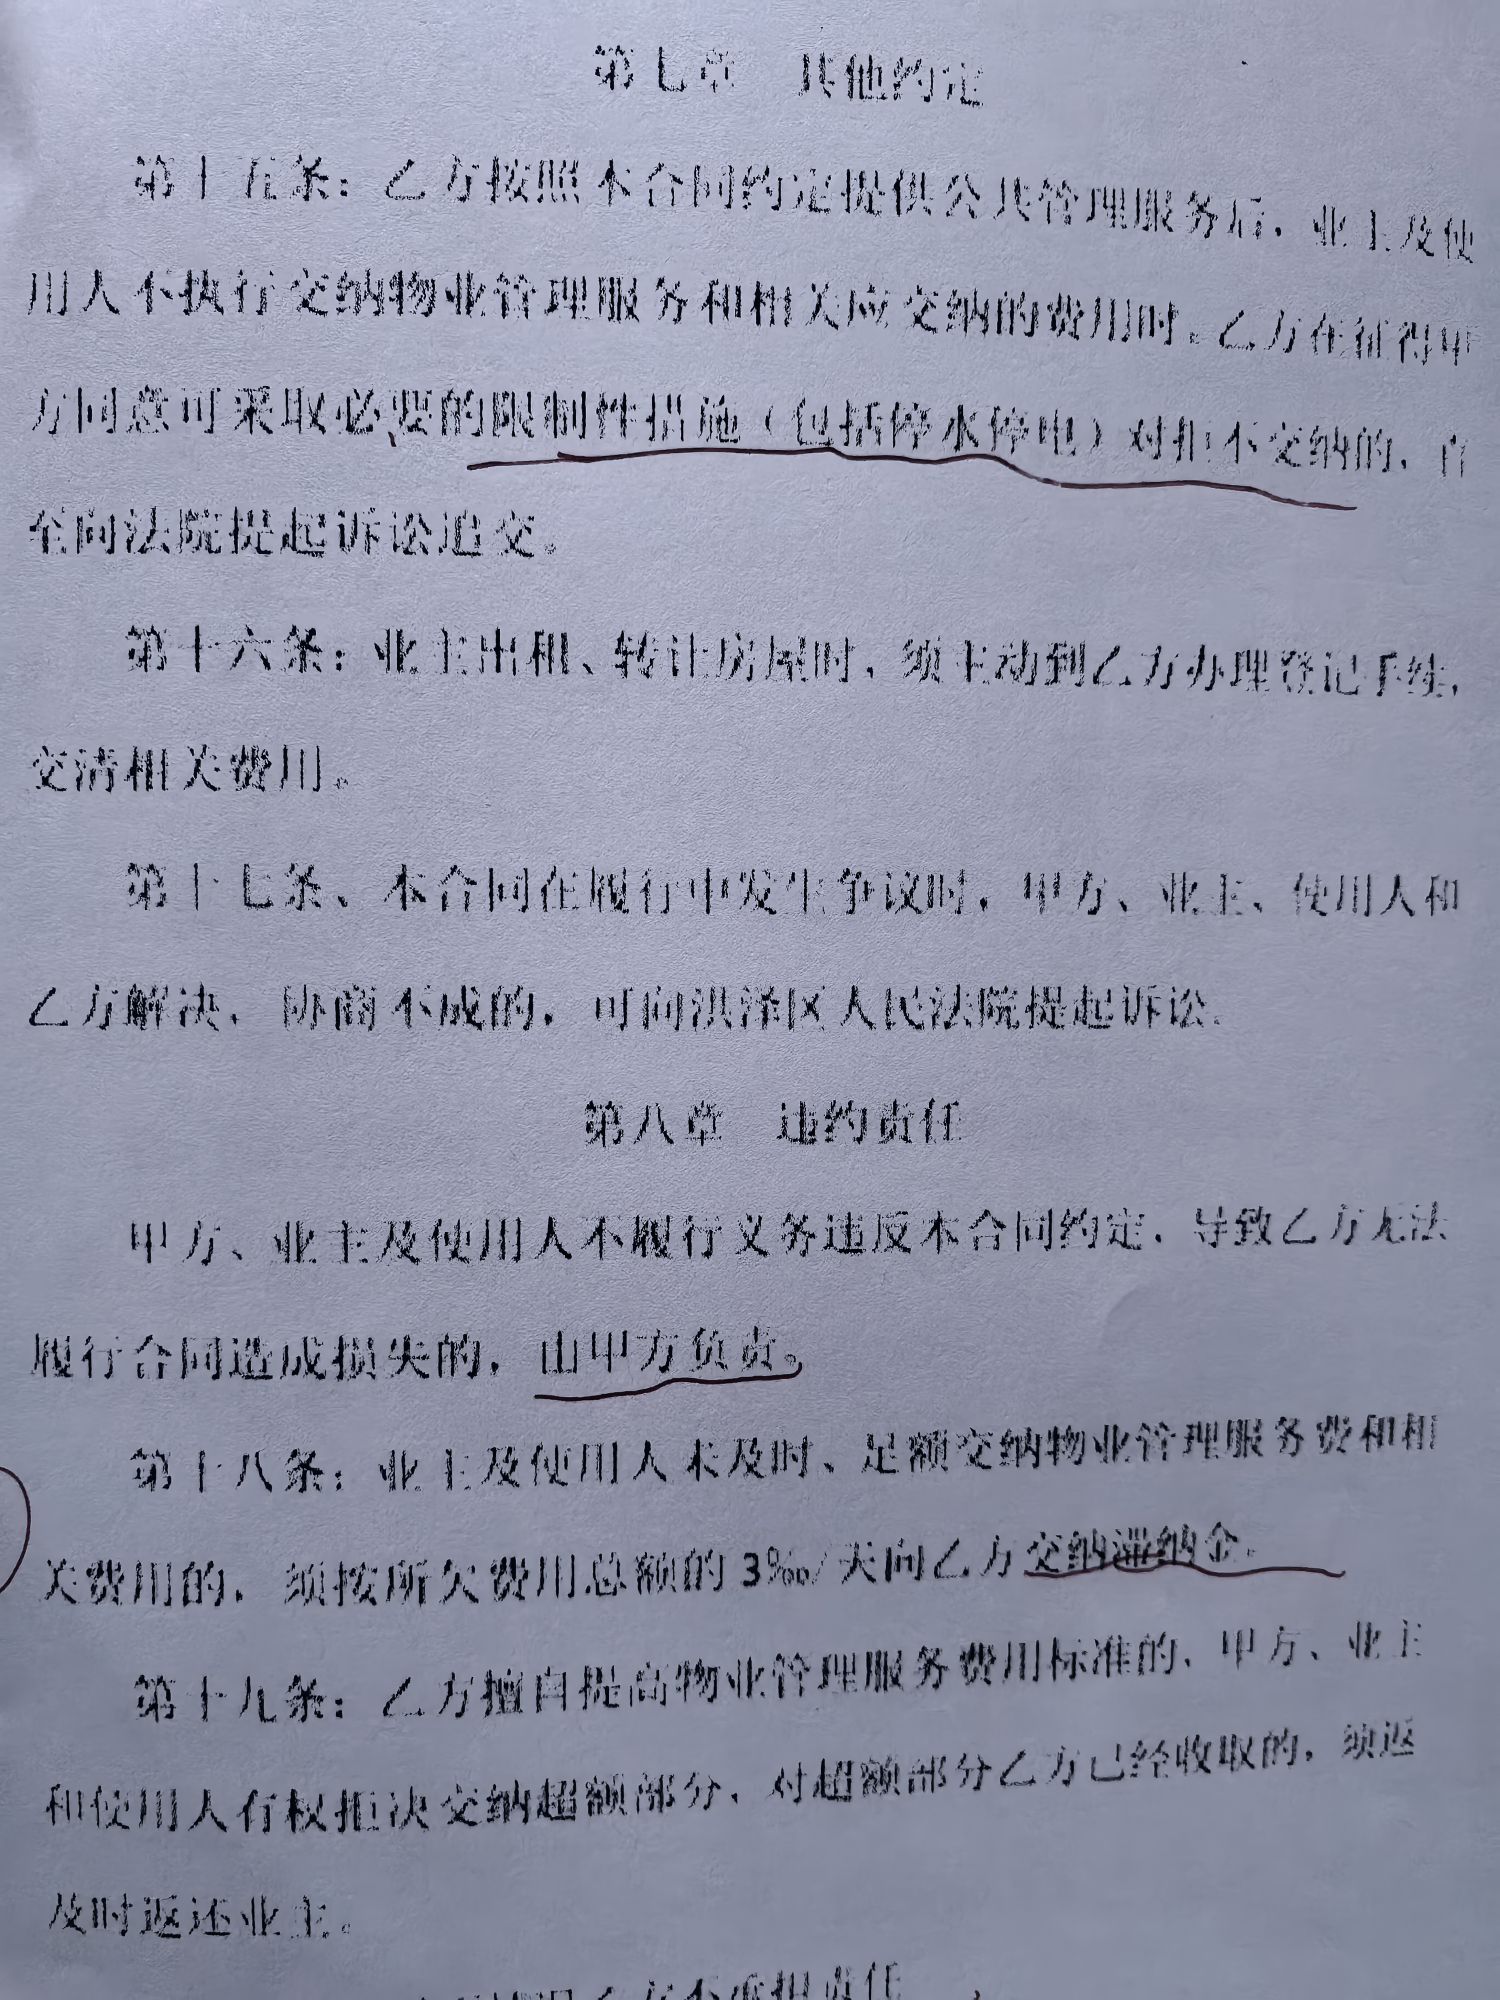 第七章 其他约定
第十五条：乙方按照本合同约定提供公共管理服务后，业主及使
用人不执行交纳物业管理服务和相关应交纳的费用时。乙方在征得甲
方同意可采取必要的限制性措施（包括停水停电）对拒不交纳的，直
至向法院提起诉讼追交。
第十六条：业主出租、转让房屋时，须主动到乙方办理登记手续，
交清相关费用。
第十七条、本合同在履行中发生争议时，甲方、业主、使用人和
乙方解决，协商不成的，可向洪泽区人民法院提起诉讼.
第八章 违约责任
甲方、业主及使用人不履行义务违反本合同约定，导致乙方无法
履行合同造成损失的，由甲方负责。
第十八条：业主及使用人未及时、足额交纳物业管理服务费和相
关费用的，须按所欠费用总额的3‰/天向乙方交纳滞纳金。
第十九条：乙方擅自提高物业管理服务费用标准的，甲方、业主
和使用人有权拒决交纳超额部分，对超额部分乙方已经收取的，须返
及时返还业主。
乙方不承担责任